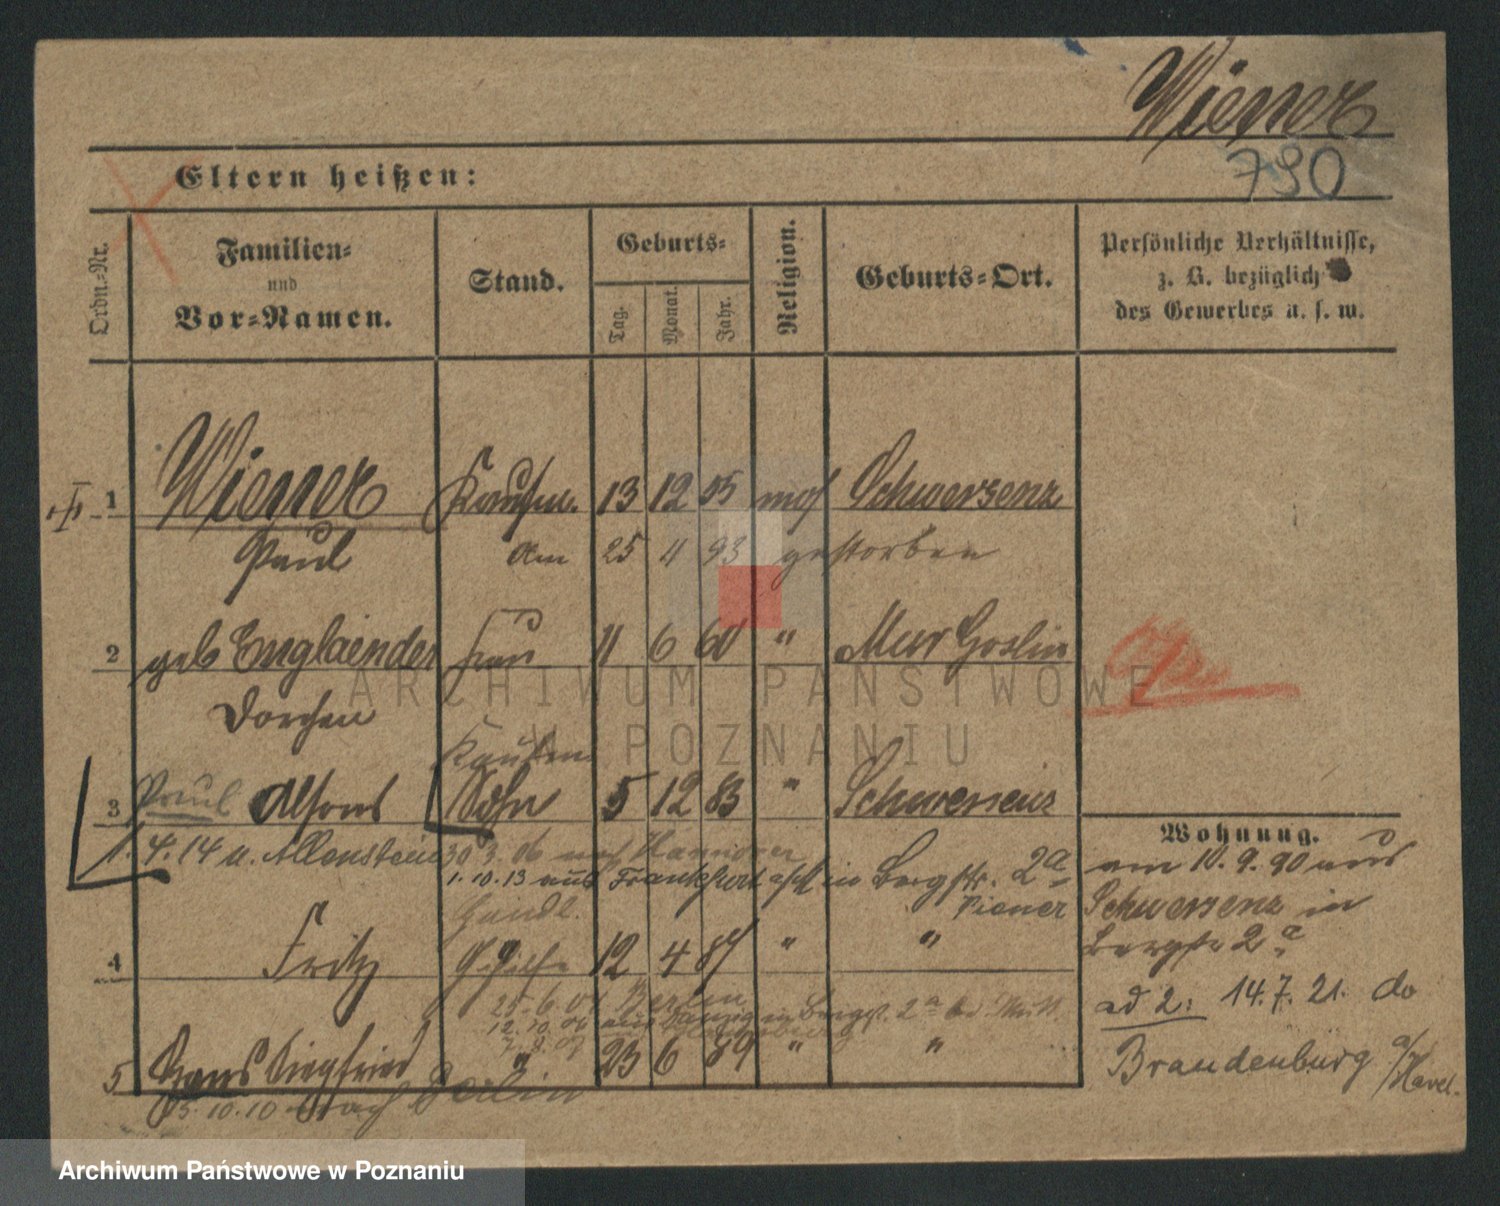 Wiener
790
Eltern heißen:
Ordn.-Nr.
Familien-
und
Vor-Namen.
Stand.
Geburts-
Tag.
Monat.
Jahr.
Religion.
Geburts-Ort.
Persönliche Verhältnisse,
z. B. bezüglich
des Gewerbes u. s. w.
1 Wiener Kaufm. 13 12 55 mos Schwersenz
Paul am 25 4 93 gestorben
2 geb Englaender Frau 11 6 60 " Mur Goslin
Dorchen
Kaufm.
3 Paul Alfons Sohn 5 12 83 " Schwersenz
1. 4. 14 n. Allenstein 30 3. 06 nach Hannover
1. 10. 13 aus Frankfurt in Bergstr. 2a
Wiener
4 Fritz 12 4 87 " "
25. 6. 04 Berlin
12. 10. 04 aus Danzig in Bergst. 2a
5 Hans Siegfried " 23 6 89 " "
5. 10. 10 nach Berlin
Wohnung.
am 10. 9. 90 aus
Schwersenz in
Bergstr 2a
ad 2: 14. 7. 21. do
Brandenburg a/Havel.
ARCHIWUM PAŃSTWOWE
W POZNANIU
Archiwum Państwowe w Poznaniu